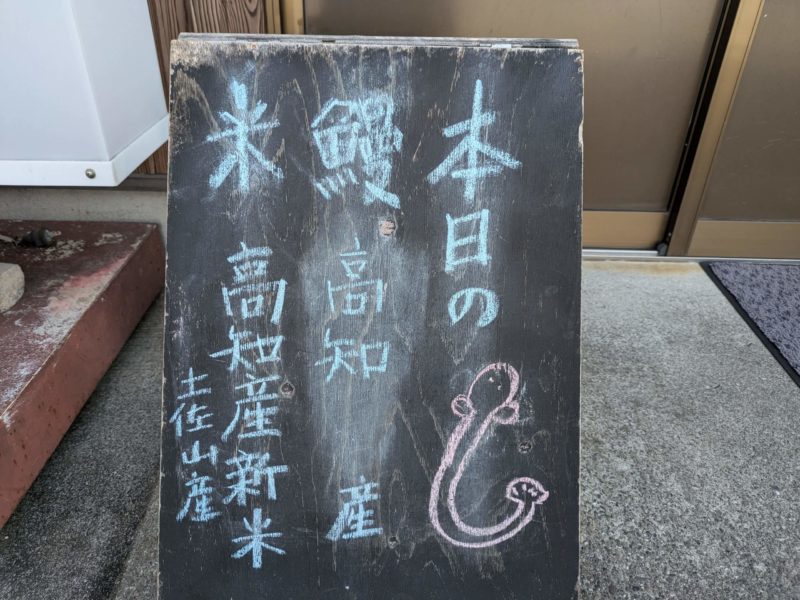 本日の
鰻 高知 産
米 高知産新米
土佐山産